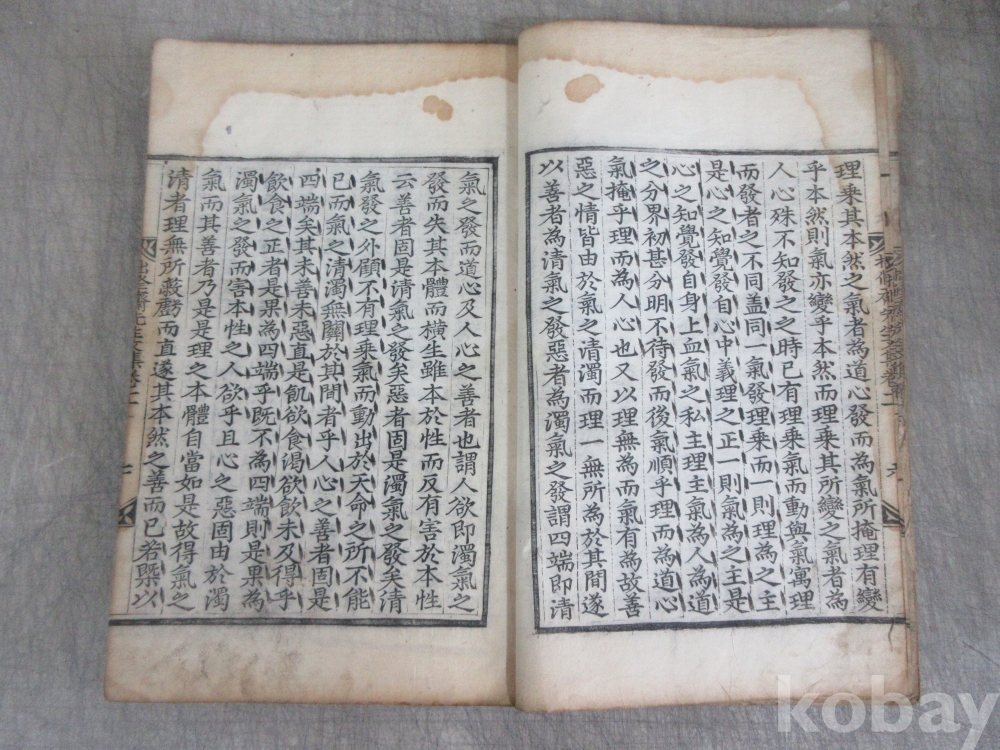 理乘其本然之氣者為道心發而為氣所掩理有變
乎本然則氣亦變乎本然而理乘其所變之氣者為
人心殊不知發之之時已有理乘氣而動與氣寓理
而發者之不同盖同一氣發理乘而一則理為之主
是心之知覺發自心中義理之正一則氣為之主是
心之知覺發自身上血氣之私主理主氣為人為道
之分界初甚分明不待發而後氣順乎理而為道心
氣掩乎理而為人心也又以理無為而氣有為故善
惡之情皆由於氣之清濁而理一無所為於其間遂
以善者為清氣之發惡者為濁氣之發謂四端即清
氣之發而道心及人心之善者也謂人欲即濁氣之
發而失其本體而橫生雖本於性而反有害於本性
云善者固是清氣之發矣惡者固是濁氣之發矣清
氣發之外顧不有理乘氣而動出於天命之所不能
已而氣之清濁無關於其間者乎人心之善者固是
四端矣其未善未惡直是飢欲食渴欲飲未及得乎
飲食之正者是果為四端乎既不為四端則是果為
濁氣之發而害本性之人欲乎且心之惡固由於濁
氣而其善者乃是是理之本體自當如是故得氣之
清者理無所蔽虧而直遂其本然之善而已若槩以
kobay